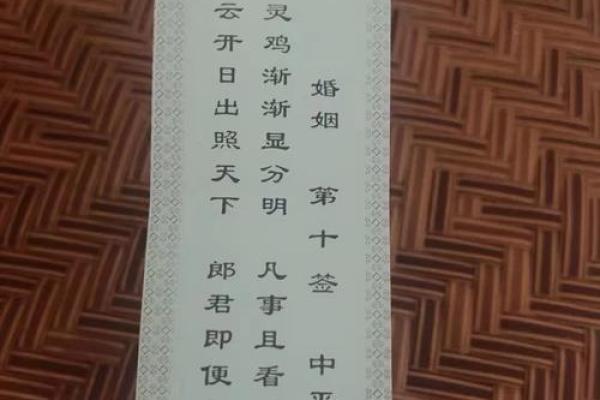 婚姻 第十签 中平
灵鸡渐渐显分明 凡事且看
云开日出照天下 郎君即便